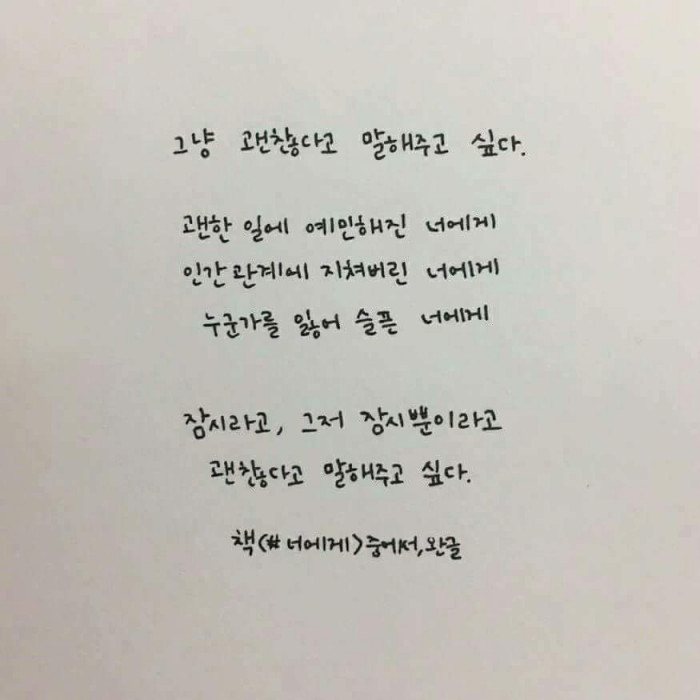 그냥 괜찮다고 말해주고 싶다.
괜한 일에 예민해진 너에게
인간관계에 지쳐버린 너에게
누군가를 잃어 슬픈 너에게
잠시라고, 그저 잠시뿐이라고
괜찮다고 말해주고 싶다.
책<#너에게>중에서, 완글